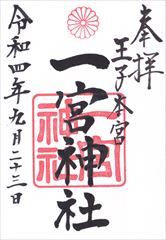 奉拝
王子本宮
一宮神社
令和四年九月二十三日